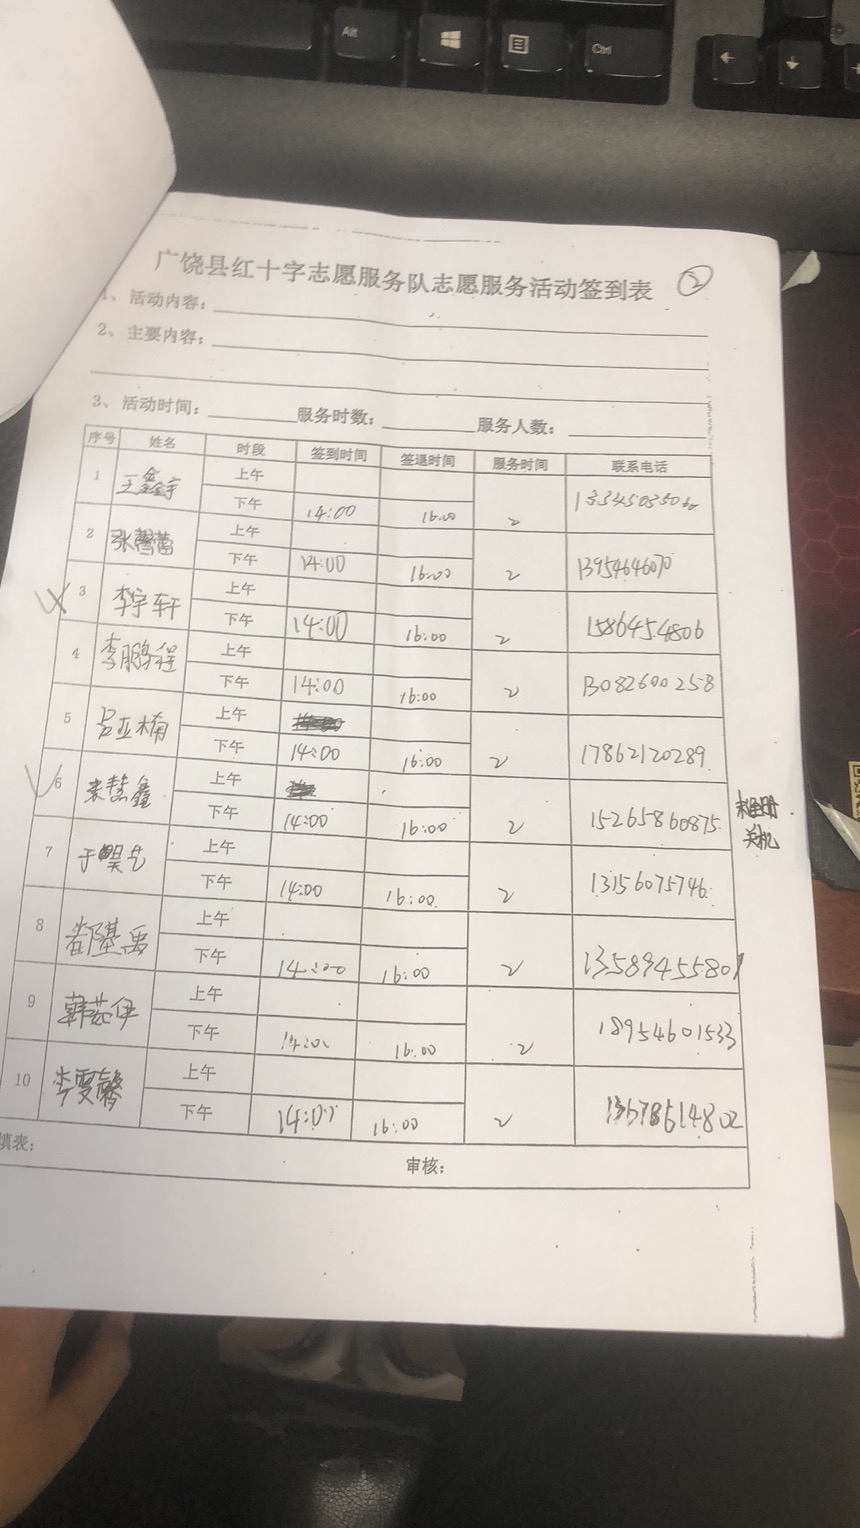 Alt
Ctrl
广饶县红十字志愿服务队志愿服务活动签到表 ②
1、活动内容：
2、主要内容：
3、活动时间： 服务时数： 服务人数：
序号 姓名 时段 签到时间 签退时间 服务时间 联系电话
1 王鑫宇 上午
下午 14:00 16:00 2
2 张馨蕾 上午
下午 14:00 16:00 2 13954646070
3 李宇轩 上午
下午 14:00 16:00 2 15864544806
4 李鹏程 上午
下午 14:00 16:00 2 13082600258
5 吕亚楠 上午
下午 14:00 16:00 2 17862120289
6 上午
下午 14:00 16:00 2 15265860875
未注册
关机
7 于昊 上午
下午 14:00 16:00 2 13156075746
8 上午
下午 14:00 16:00 2 13589455801
9 韩茹伊 上午
下午 14:00 16:00 2 18954601533
10 李雯馨 上午
下午 14:00 16:00 2
填表：
审核：